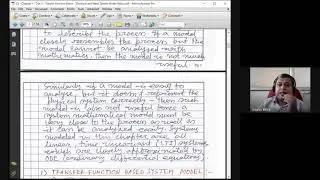 to describe the process. If a model
closely resembles the process but the
model cannot be analyzed with
mathematics. Then the model is not much
useful.
Similarly if a model is easy to
analyse, but it doesn't represent the
physical system correctly - then such
model is also not useful hence a
system mathematical model must be
very close to the process as well as
it can be analyzed easily. Systems
modeled in this chapter are called
linear time invariant (LTI) systems
which are closely approximated by
ODE (ordinary differential equations).
1) TRANSFER FUNCTION BASED SYSTEM MODEL :-